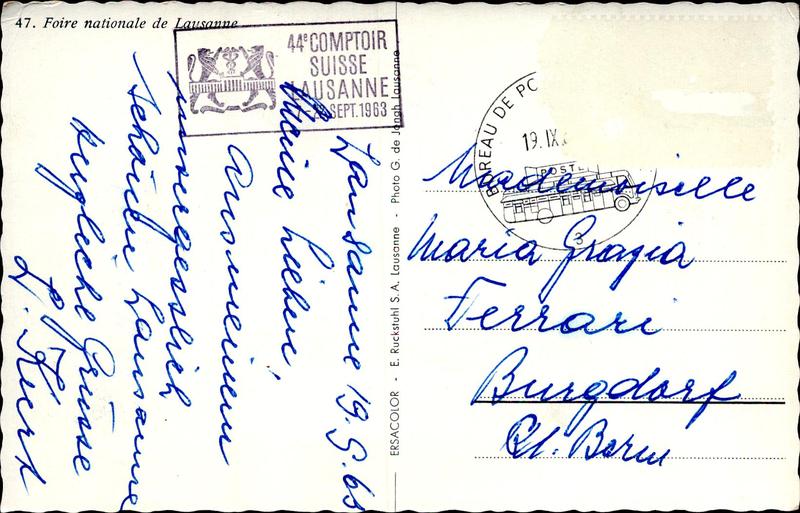 47. Foire nationale de Lausanne
44e COMPTOIR
SUISSE
LAUSANNE
22 SEPT. 1963
Lausanne 19.9.63
Meine Lieben,
Aus meinem
unvergesslich
schönen Lausanne
herzliche Grüsse
ERSACOLOR - E. Ruckstuhl S.A. Lausanne - Photo G. de Jongh Lausanne
BUREAU DE PO
19. IX.
POSTE
3
Mademoiselle
Maria Grazia
Ferrari
Burgdorf
Kt. Bern